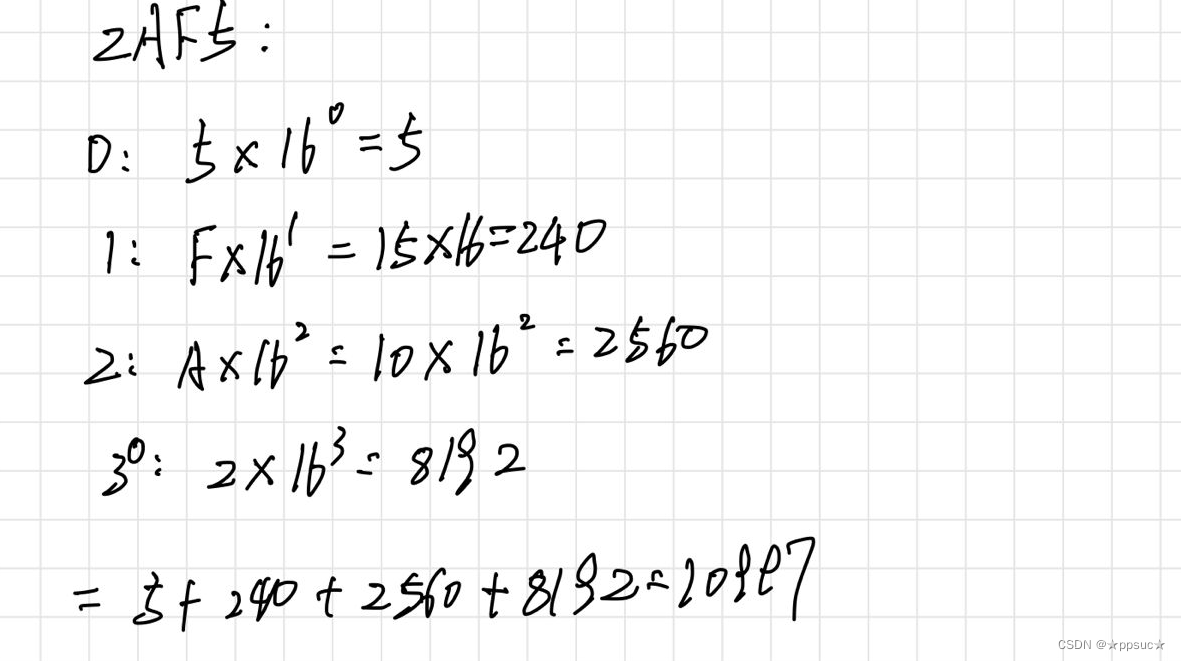 2AF5:
0: 5×16⁰=5
1: F×16¹=15×16=240
2: A×16²=10×16²=2560
3⁰: 2×16³=8192
=5+240+2560+8192=10997
CSDN @☆ppsuc☆